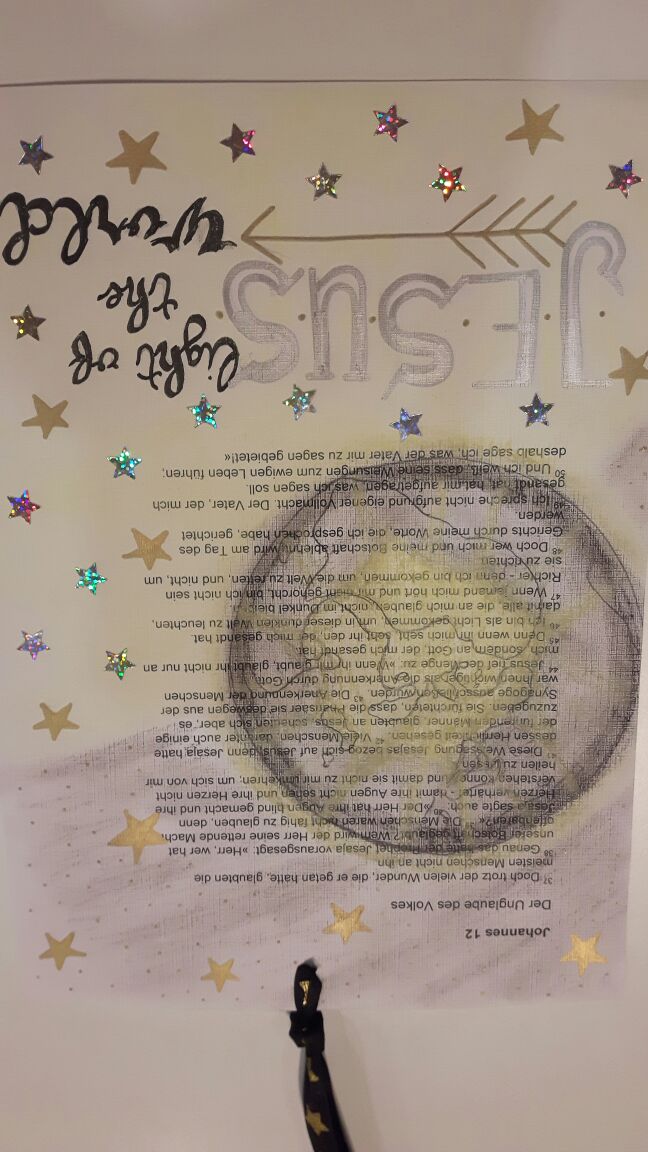 Johannes 12
Der Unglaube des Volkes
37 Doch trotz der vielen Wunder, die er getan hatte, glaubten die
meisten Menschen nicht an ihn.
38 Genau das hatte der Prophet Jesaja vorausgesagt: »Herr, wer hat
unserer Botschaft geglaubt? Wem wird der Herr seine rettende Macht
offenbaren?« 39 Die Menschen waren nicht fähig zu glauben, denn
Jesaja sagte auch: 40 »Der Herr hat ihre Augen blind gemacht und ihre
Herzen verhärtet - damit ihre Augen nicht sehen und ihre Herzen nicht
verstehen können und damit sie nicht zu mir umkehren, um sich von mir
heilen zu lassen.«
41 Diese Weissagung Jesajas bezog sich auf Jesus, denn Jesaja hatte
dessen Herrlichkeit gesehen. 42 Viele Menschen, darunter auch einige
der führenden Männer, glaubten an Jesus, scheuten sich aber, es
zuzugeben. Sie fürchteten, dass die Pharisäer sie deswegen aus der
Synagoge ausschließen würden. 43 Die Anerkennung der Menschen
war ihnen wichtiger als die Anerkennung durch Gott.
44 Jesus rief der Menge zu: »Wenn ihr mir glaubt, glaubt ihr nicht nur an
mich, sondern an Gott, der mich gesandt hat.
45 Denn wenn ihr mich seht, seht ihr den, der mich gesandt hat.
46 Ich bin als Licht gekommen, um in dieser dunklen Welt zu leuchten,
damit alle, die an mich glauben, nicht im Dunkel bleiben.
47 Wenn jemand mich hört und mir nicht gehorcht, bin ich nicht sein
Richter - denn ich bin gekommen, um die Welt zu retten, und nicht, um
sie zu richten.
48 Doch wer mich und meine Botschaft ablehnt, wird am Tag des
Gerichts durch meine Worte, die ich gesprochen habe, gerichtet
werden.
49 Ich spreche nicht aufgrund eigener Vollmacht. Der Vater, der mich
gesandt hat, hat mir aufgetragen, was ich sagen soll.
50 Und ich weiß, dass seine Weisungen zum ewigen Leben führen;
deshalb sage ich, was der Vater mir zu sagen gebietet!«
JESUS
light of
the
world